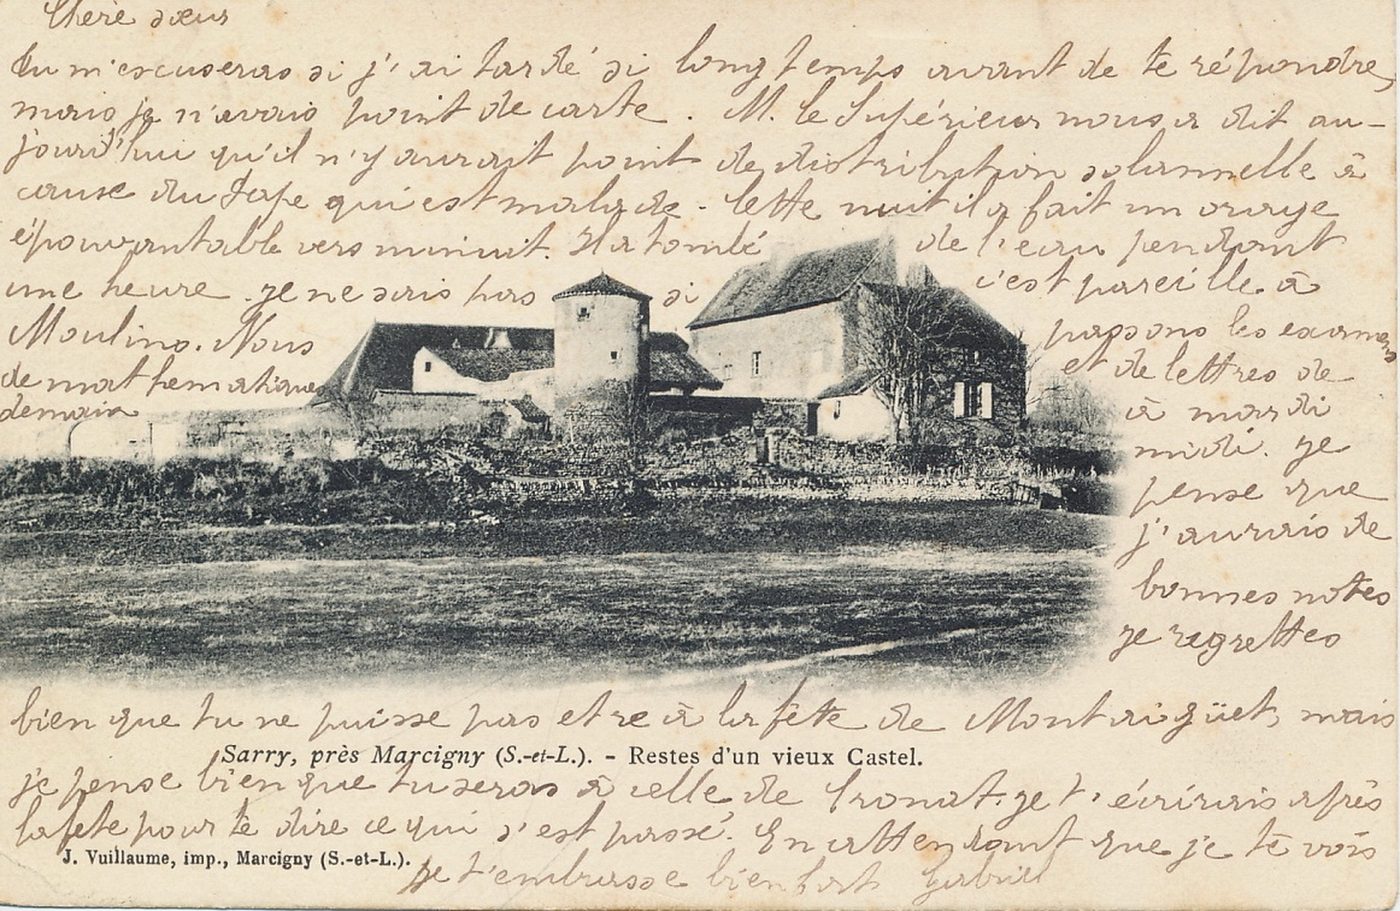 Chère sœur
Tu m'escuseras si j'ai tardé si longtemps avant de te répondre,
mais je n'avais point de carte. M. le Supérieur nous a dit au-
jourd'hui qu'il n'y aurait point de distribution solannelle à
cause du Pape qui est malade. Cette nuit il a fait un orage
épouvantable vers minuit. Il a tombé de l'eau pendant
une heure. je ne sais pas si c'est pareille à
Moulins. Nous passons les examens
de mathematiques et de lettres de
demain à mardi
midi. je
pense que
j'aurais de
bonnes notes
je regrettes
bien que tu ne puisse pas etre à la fête de Montaigüet, mais
Sarry, près Marcigny (S.-et-L.). - Restes d'un vieux Castel.
je pense bien que tu seras à celle de Cronat. je t'écrirais après
la fete pour te dire ce qui s'est passé. En attendant que je te vois
J. Vuillaume, imp., Marcigny (S.-et-L.).
je t'embrasse bien fort Gabriel